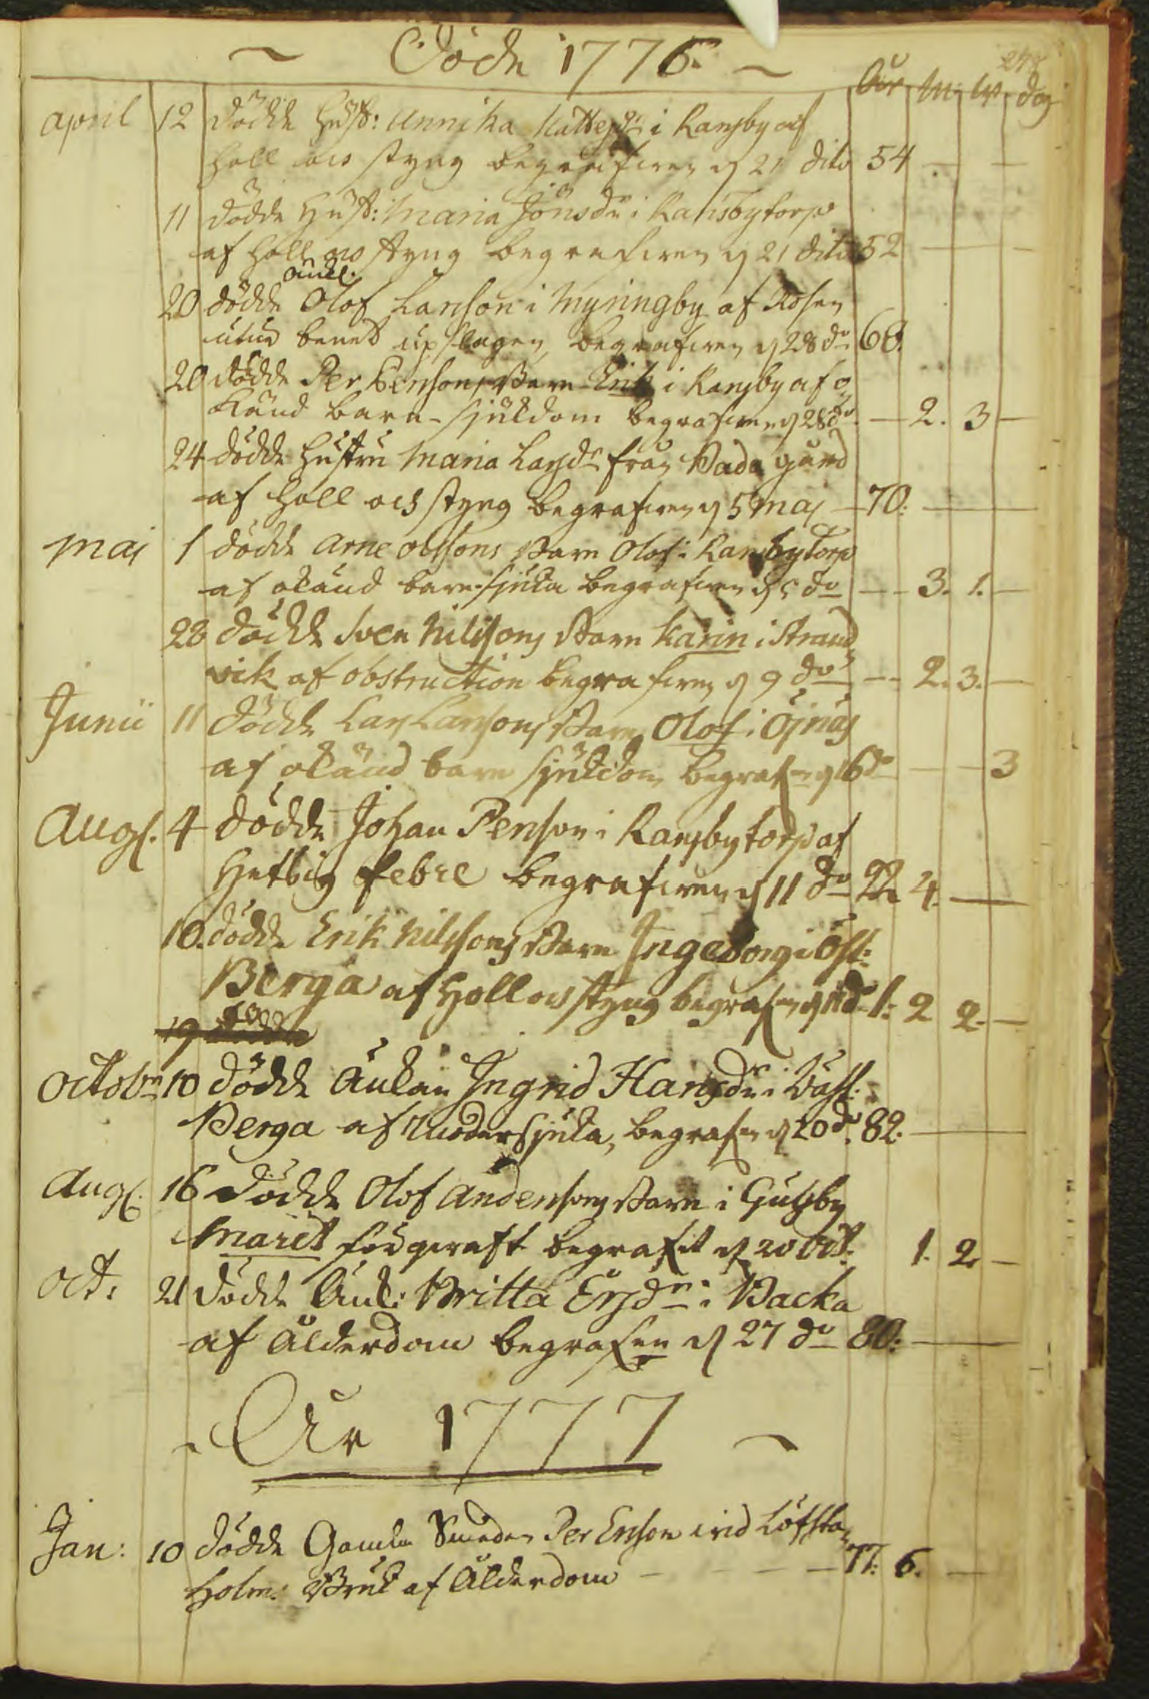 ~ Döde 1776. ~
248
åhr m. w. dag
april 12 dödde Hust: Annika i Ransby af
håll och styng begrafwen d 21 dito 54 - - -
11 dödde Hust: Maria Jönsdr i Ransbytorp
af håll och styng begrafwen d 21 dito 52 - - -
änkl.
20 dödde Olof Larsson i Myringby af Rosen
utur benet upslagen, begrafwen d 28 do 60.
20 dödde Per Ersons Barn Erik i Ransby af o
känd barn-sjukdom begrafwen d 28 do - 2. 3 -
24 dödde hustru Maria Larsdr från Bada gård
af håll och styng begrafwen d 5 maj 70. - - -
maj 1 dödde Arne Olssons Barn Olof i Ransbytorp
af okänd barnsjuka begrafwen d 5 do - 3. 1. -
28 dödde Sven Nilssons Barn Karin i Strand
vik af obstruction begrafwen d 9 do - 2. 3. -
Junii 11 dödde Lars Larssons Barn Olof i Öjnäs
af okänd barn sjukdom begrafn d 16 do - - - 3
Augs. 4 dödde Johan Person i Ransbytorp af
Hetsig febre begrafwen d 11 do 22 4. -
10. dödde Erik Nilssons Barn Ingeborg i Öst:
Berga af Håll och styng begrafn d 11 do 1: 2 2. -
19 dödde
Octobr 10 dödde Änkan Ingrid Hansdr i Väst:
Berga af Modersjuka, begrafn d 20 do. 82. -
Augs. 16 dödde Olof Andersons Barn i Gulsby
Marit förqvaft begrafit d 20 dit. 1. 2. -
Oct: 21 dödde Änk: Britta Ersdr i Backa
af Ålderdom begrafen d 27 do 80. -
Åhr 1777
Jan: 10 dödde Gamla Smeden Per Erson vid Löfsta
holms Bruk af Ålderdom - - - 77: 6. -